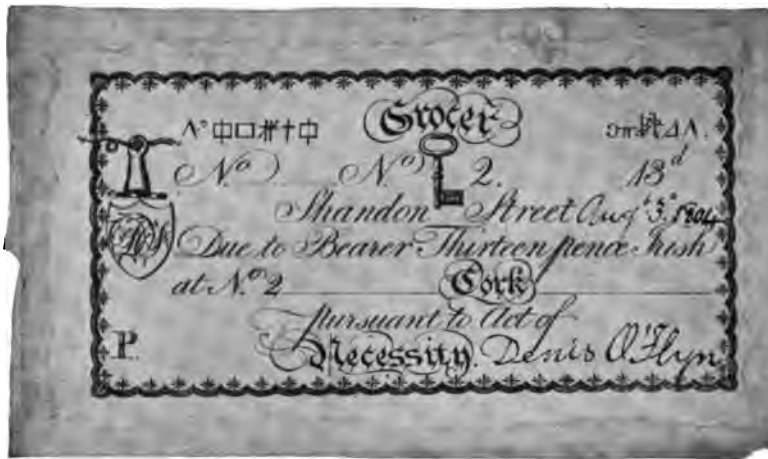 Grocer
No. No. 2. 13d
Shandon Street Augt 3d 1804
Due to Bearer Thirteen pence Irish
at No. 2 Cork
Pursuant to Act of
P. Necessity. Denis O'Flyn